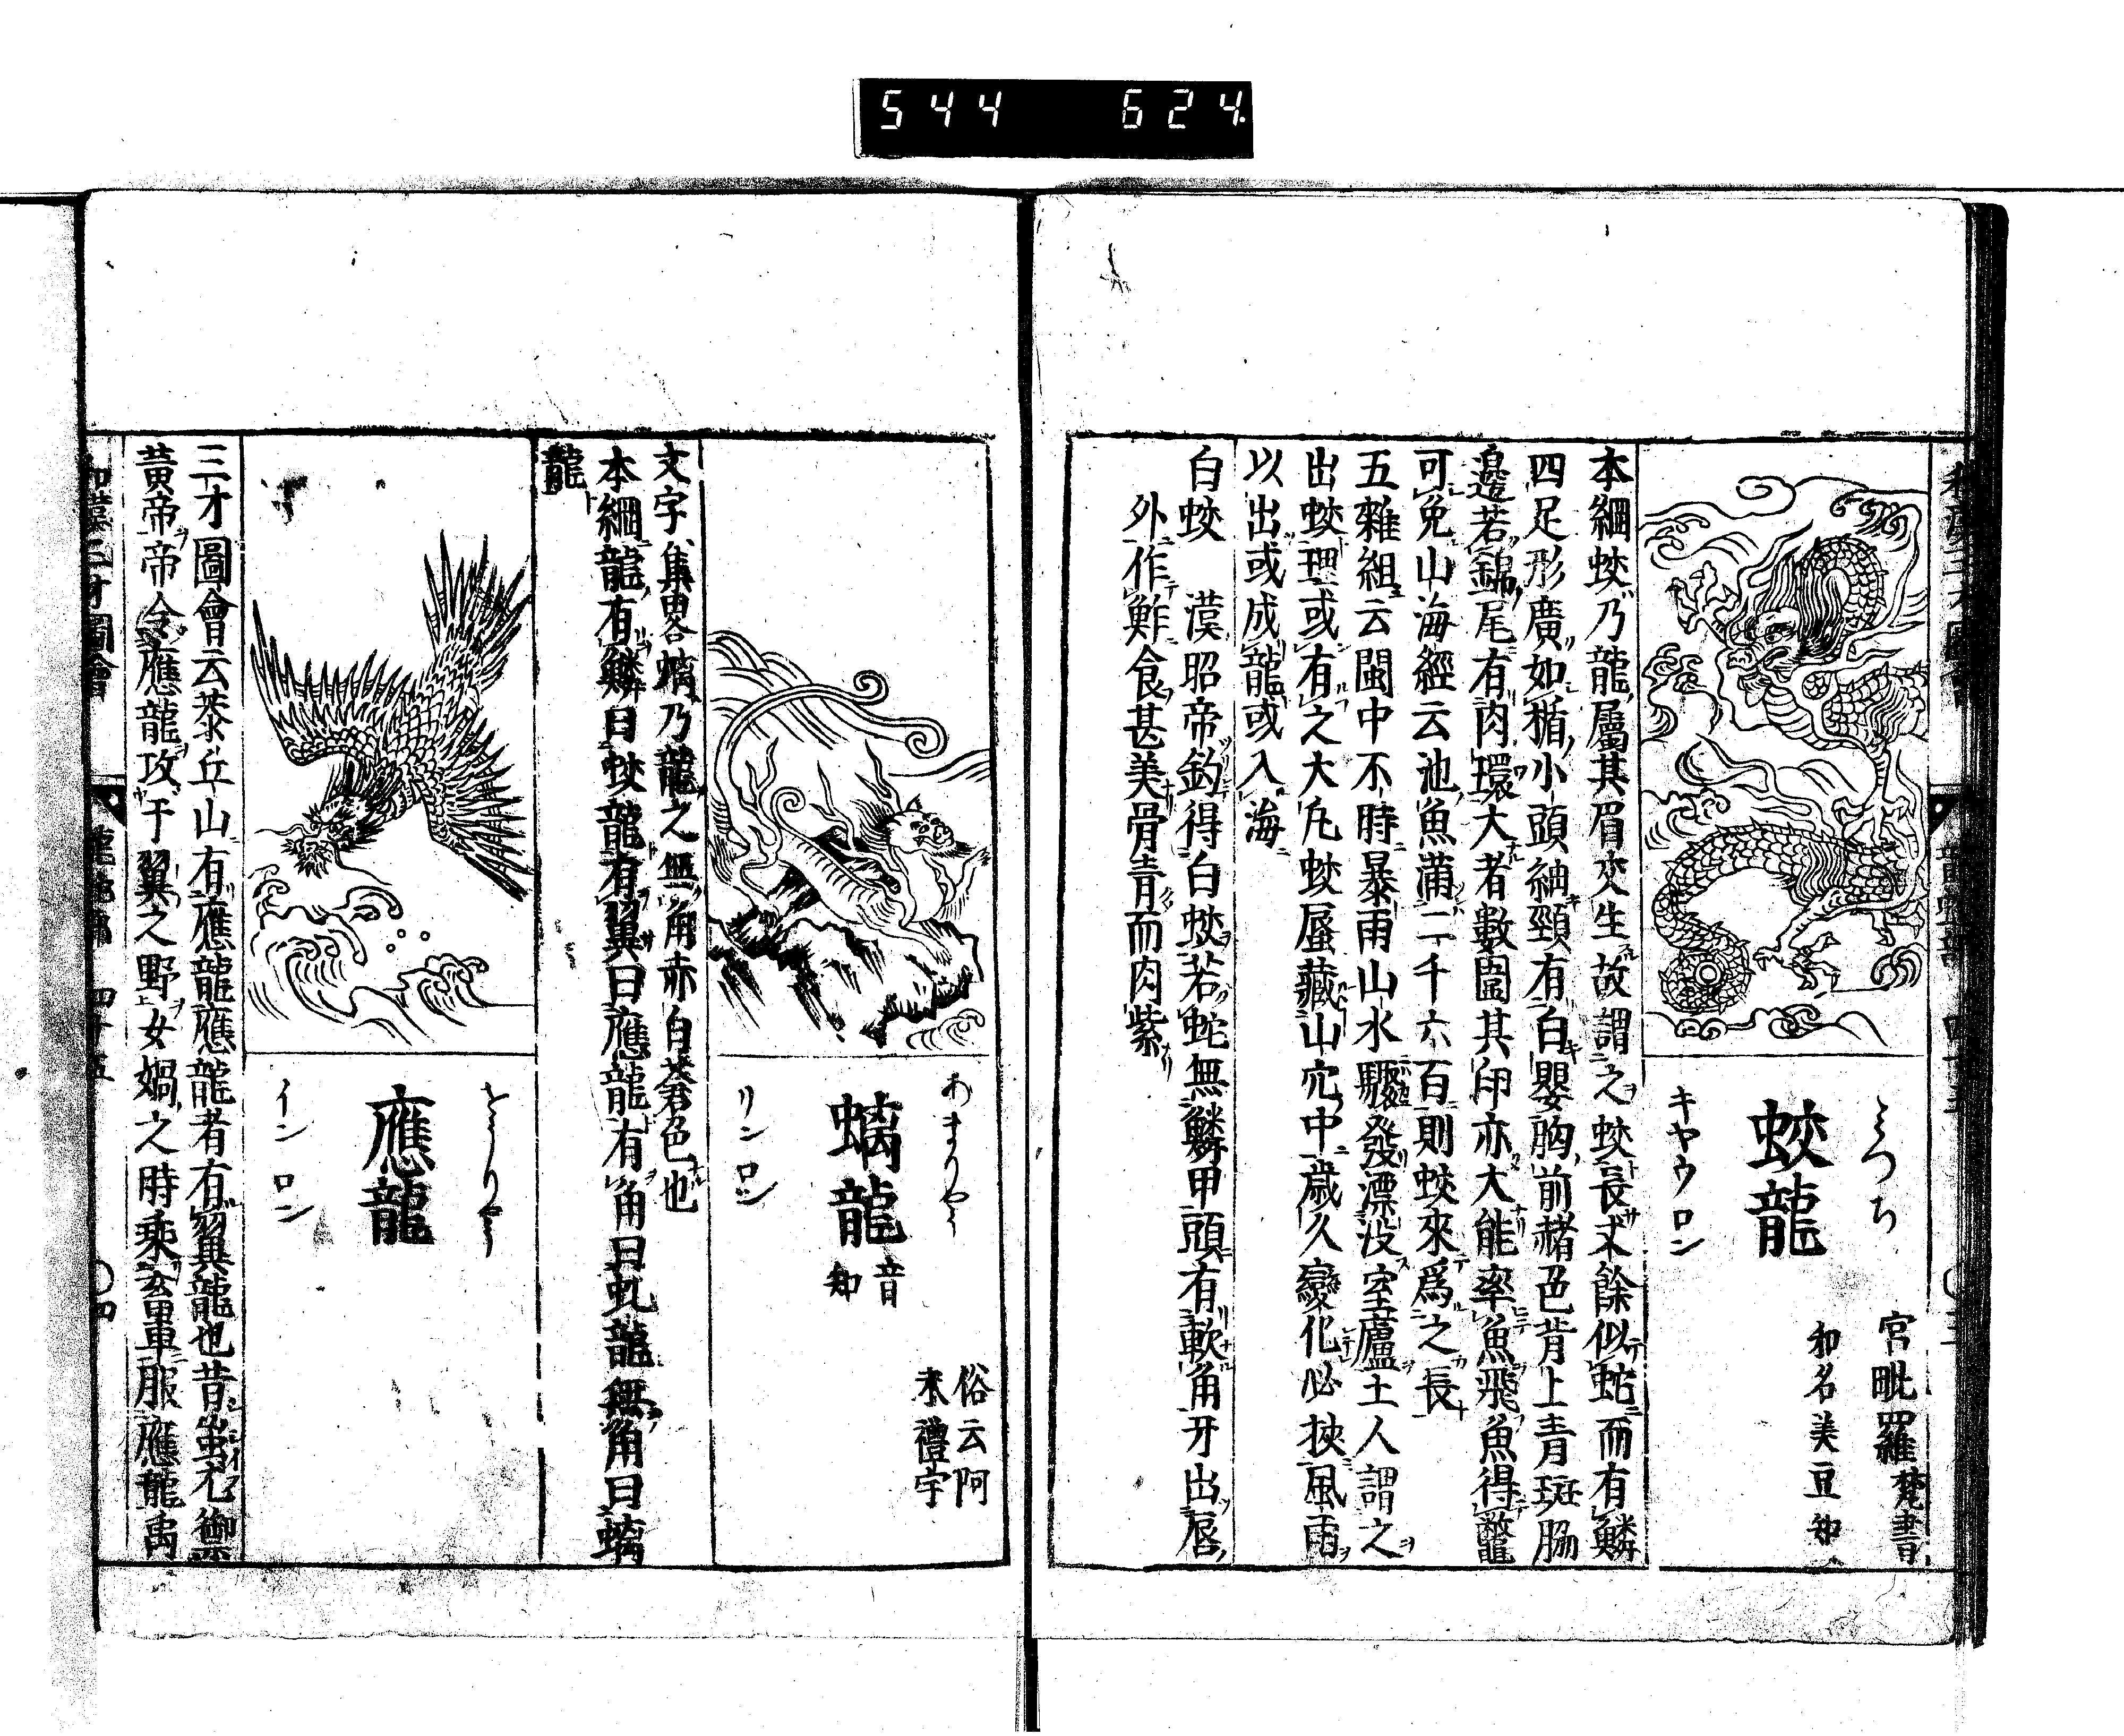 544 624
みつち
蛟龍
キヤウロン
宮毗羅 梵書
和名美豆知
本綱蛟乃龍屬其眉交生故謂之蛟長丈餘似蛇而有鱗
四足形廣如楯小頭細頸有白嬰胸前赭色背上青斑脇
邊若錦尾有肉環大者數圍其卵亦大能率魚飛魚得鼈
可免山海經云池魚滿二千六百則蛟來爲之長
五雜組云閩中不時暴雨山水驟發漂没室廬土人謂之
出蛟理或有之大凡蛟蜃藏山穴中歲久變化必挾風雨
以出或成龍或入海
白蛟 漠昭帝釣得白蛟若蛇無鱗甲頭有軟角牙出唇
外作鮓食甚美骨青而肉紫
あまりやう
螭龍 音知
リンロン
俗云阿末禮宇
文字集畧螭乃龍之無角赤白蒼色也
本綱龍有鱗曰蛟龍有翼曰應龍有角曰虬龍無角曰螭
龍
をうりやう
應龍
インロン
三才圖會云恭丘山有應龍應龍者有翼龍也昔蚩尤禦
黃帝帝令應龍攻于翼之野女媧之時乘畜車服應龍禹
和漢三才圖會 龍蛇部 四十五 〇四